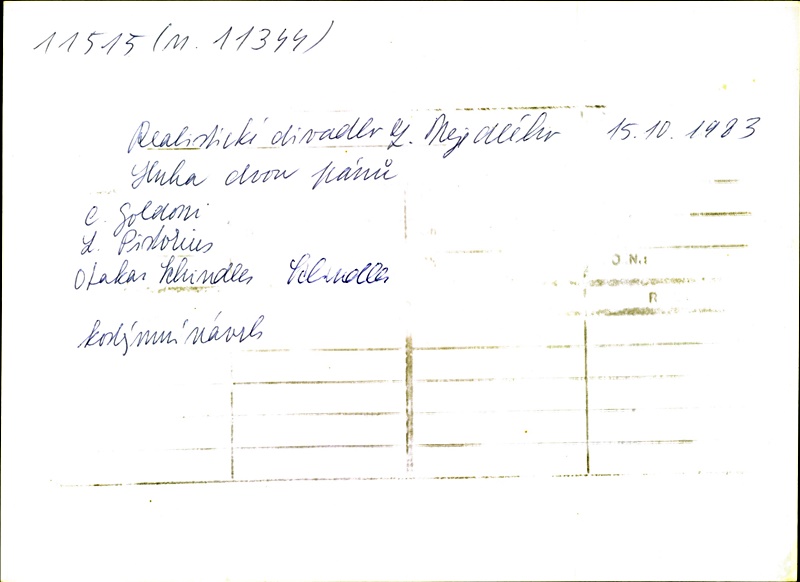 11515 (n. 11344)
Realistické divadlo Z. Nejedlého 15.10.1983
Sluha dvou pánů
C. Goldoni
L. Pistorius
Otakar Schindler Schindler
kostýmní návrh
O N.:
R